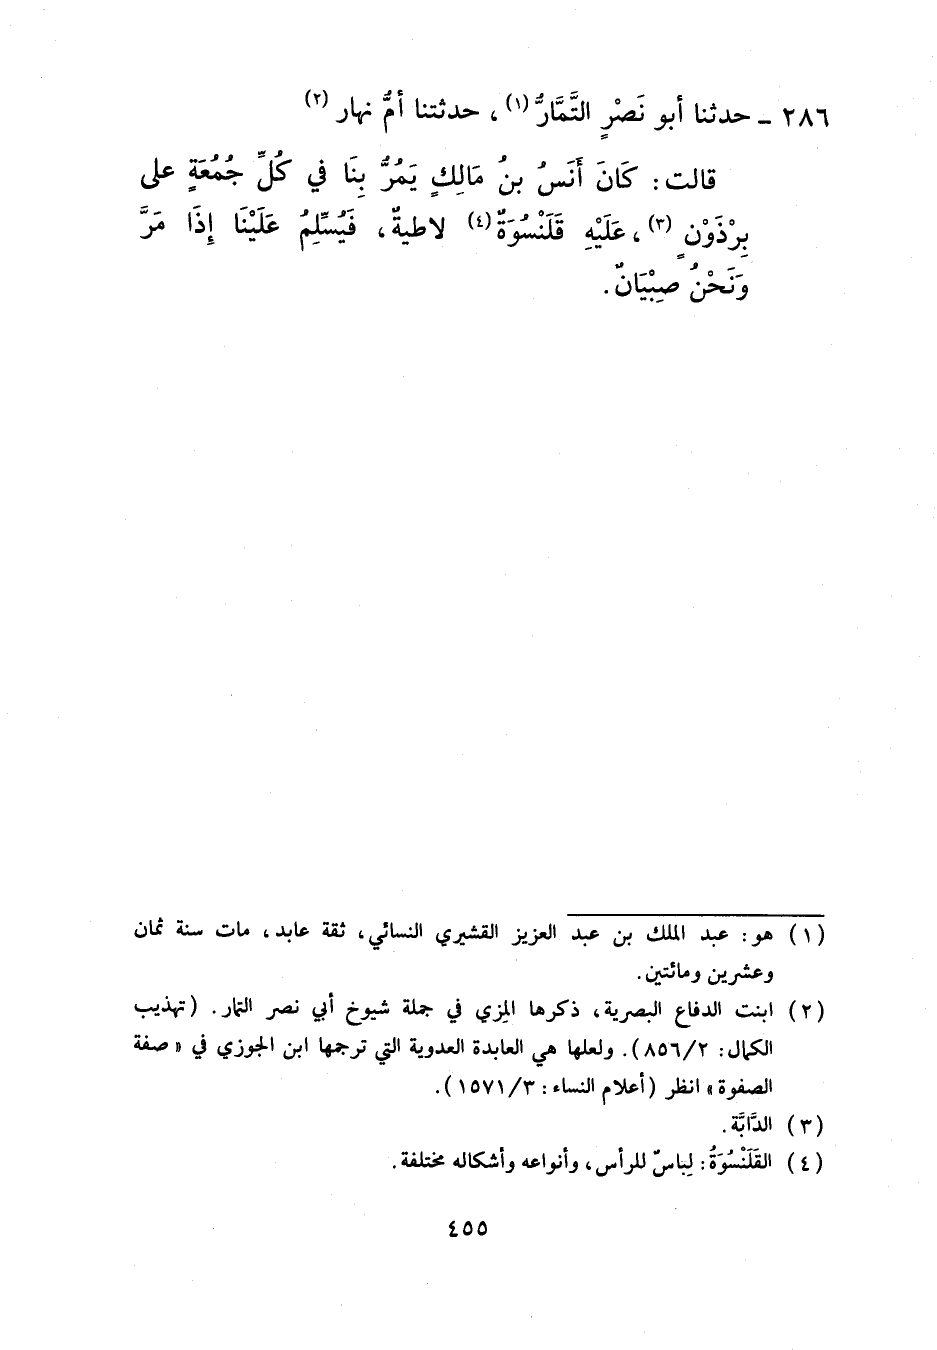 ٢٨٦ ـ حدثنا أبو نَصْرٍ التَّمَّارُ(١)، حدثتنا أمُّ نهار(٢)
قالت: كَانَ أَنَسُ بنُ مَالِكٍ يَمُرُّ بِنَا في كُلِّ جُمُعَةٍ على
بِرْذَوْنٍ(٣)، عَلَيْهِ قَلَنْسُوَةٌ(٤) لاطيةٌ، فَيُسَلِّمُ عَلَيْنَا إِذَا مَرَّ
وَنَحْنُ صِبْيَانٌ.
(١) هو: عبد الملك بن عبد العزيز القشيري النسائي، ثقة عابد، مات سنة ثمان
وعشرين ومائتين.
(٢) ابنت الدفاع البصرية، ذكرها المِزي في جملة شيوخ أبي نصر التمار. (تهذيب
الكمال: ٨٥٦/٢). ولعلها هي العابدة العدوية التي ترجمها ابن الجوزي في «صفة
الصفوة» انظر (أعلام النساء: ١٥٧١/٣).
(٣) الدَّابَّة.
(٤) القَلَنْسُوَةُ: لِباسٌ للرأس، وأنواعه وأشكاله مختلفة.
٤٥٥